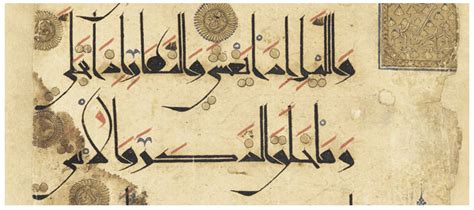 والليل اذا يغشى والنهار اذا تجلى
وما خلق الذكر والانثى